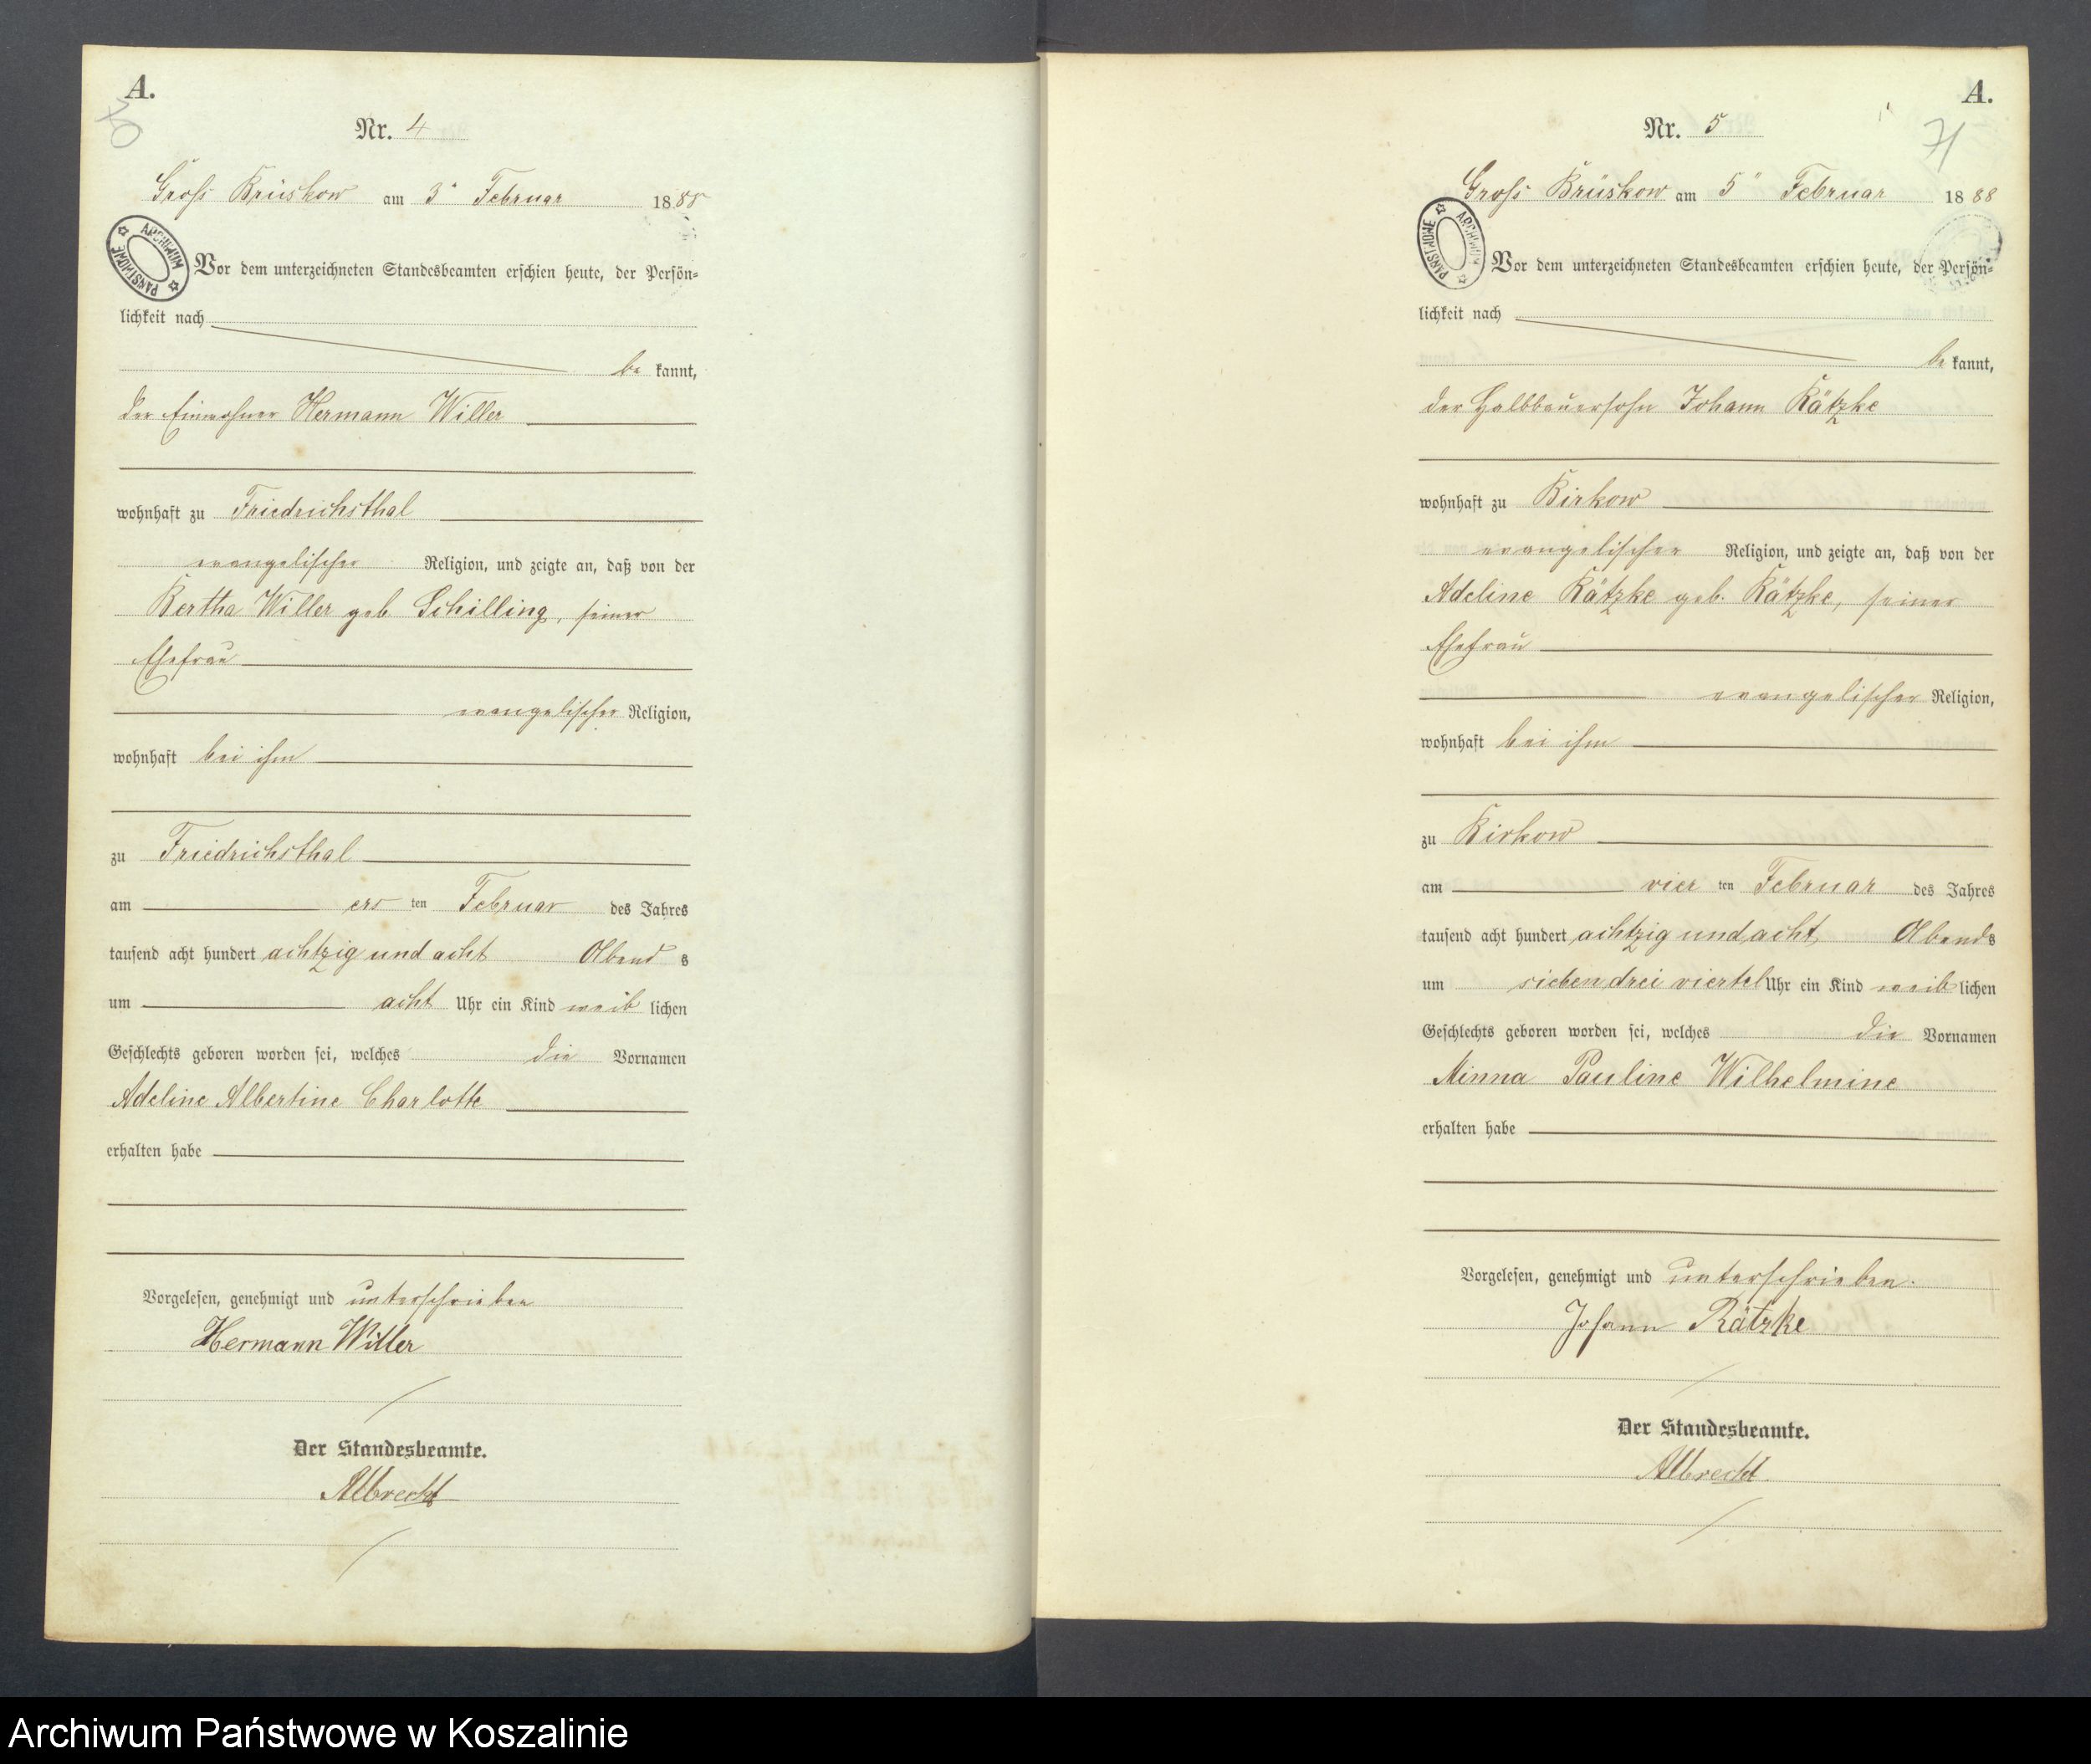 A.
Nr. 4
Groß Brüskow am 3" Februar 1888
ARCHIWUM PAŃSTWOWE
Vor dem unterzeichneten Standesbeamten erschien heute, der Persön=
lichkeit nach
be kannt,
der Einwohner Hermann Willer
wohnhaft zu Friedrichsthal
evangelischer Religion, und zeigte an, daß von der
Bertha Willer geb Schilling, seiner
Ehefrau
evangelischer Religion,
wohnhaft bei ihm
zu Friedrichsthal
am ers ten Februar des Jahres
tausend acht hundert achtzig und acht Abend s
um acht Uhr ein Kind weib lichen
Geschlechts geboren worden sei, welches die Vornamen
Adeline Albertine Charlotte
erhalten habe
Vorgelesen, genehmigt und unterschrieben
Hermann Willer
Der Standesbeamte.
Albrecht
A.
71
Nr. 5
Groß Brüskow am 5" Februar 1888
ARCHIWUM PAŃSTWOWE
Vor dem unterzeichneten Standesbeamten erschien heute, der Persön=
lichkeit nach
be kannt,
der Halbbauersohn Johann Rätzke
wohnhaft zu Birkow
evangelischer Religion, und zeigte an, daß von der
Adeline Rätzke geb. Rätzke, seiner
Ehefrau
evangelischer Religion,
wohnhaft bei ihm
zu Birkow
am vier ten Februar des Jahres
tausend acht hundert achtzig und acht Abends
um sieben drei viertel Uhr ein Kind weib lichen
Geschlechts geboren worden sei, welches die Vornamen
Minna Pauline Wilhelmine
erhalten habe
Vorgelesen, genehmigt und unterschrieben.
Johann Rätzke
Der Standesbeamte.
Albrecht
Archiwum Państwowe w Koszalinie